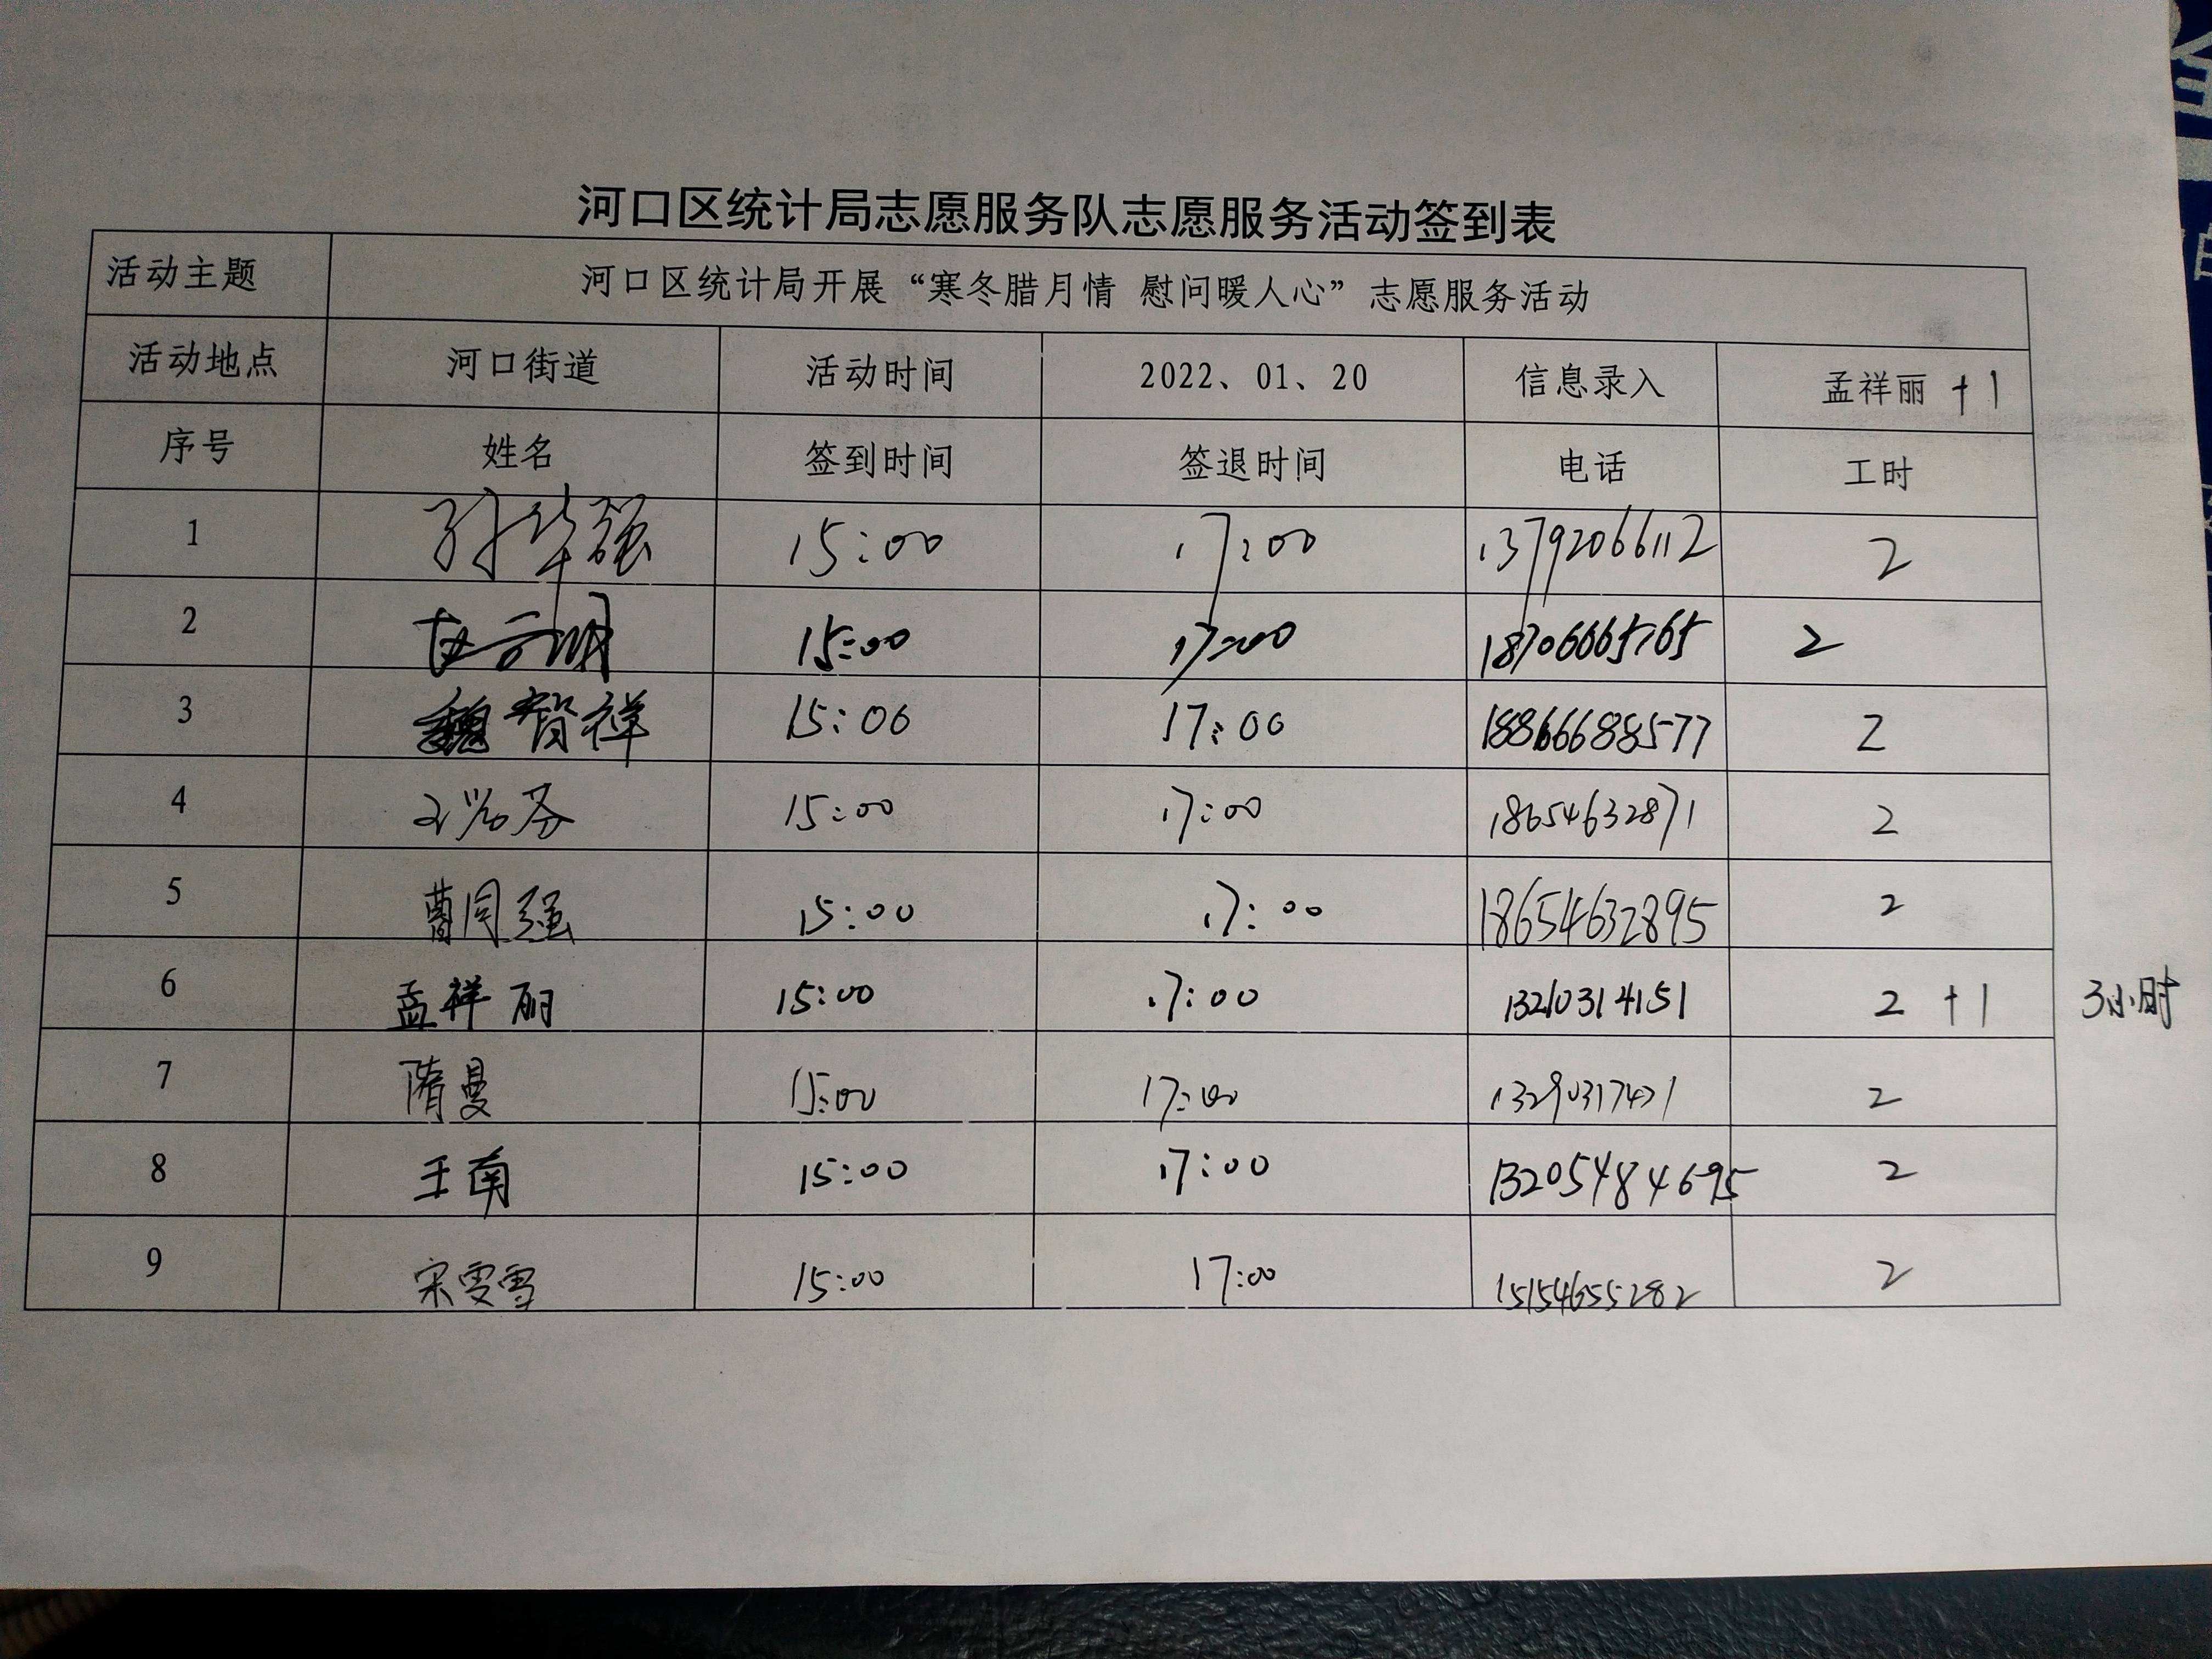 河口区统计局志愿服务队志愿服务活动签到表
活动主题 河口区统计局开展“寒冬腊月情 慰问暖人心”志愿服务活动
活动地点 河口街道 活动时间 2022、01、20 信息录入 孟祥丽 +1
序号 姓名 签到时间 签退时间 电话 工时
1 孙华强 15:00 17:00 13792066112 2
2 15:00 17:00 18706665765 2
3 魏智祥 15:00 17:00 18866688577 2
4 15:00 17:00 18654632871 2
5 曹同强 15:00 17:00 18654632895 2
6 孟祥丽 15:00 17:00 13210314151 2 +1 3小时
7 隋曼 15:00 17:00 2
8 王南 15:00 17:00 13205484695 2
9 宋雯雪 15:00 17:00 15154655282 2